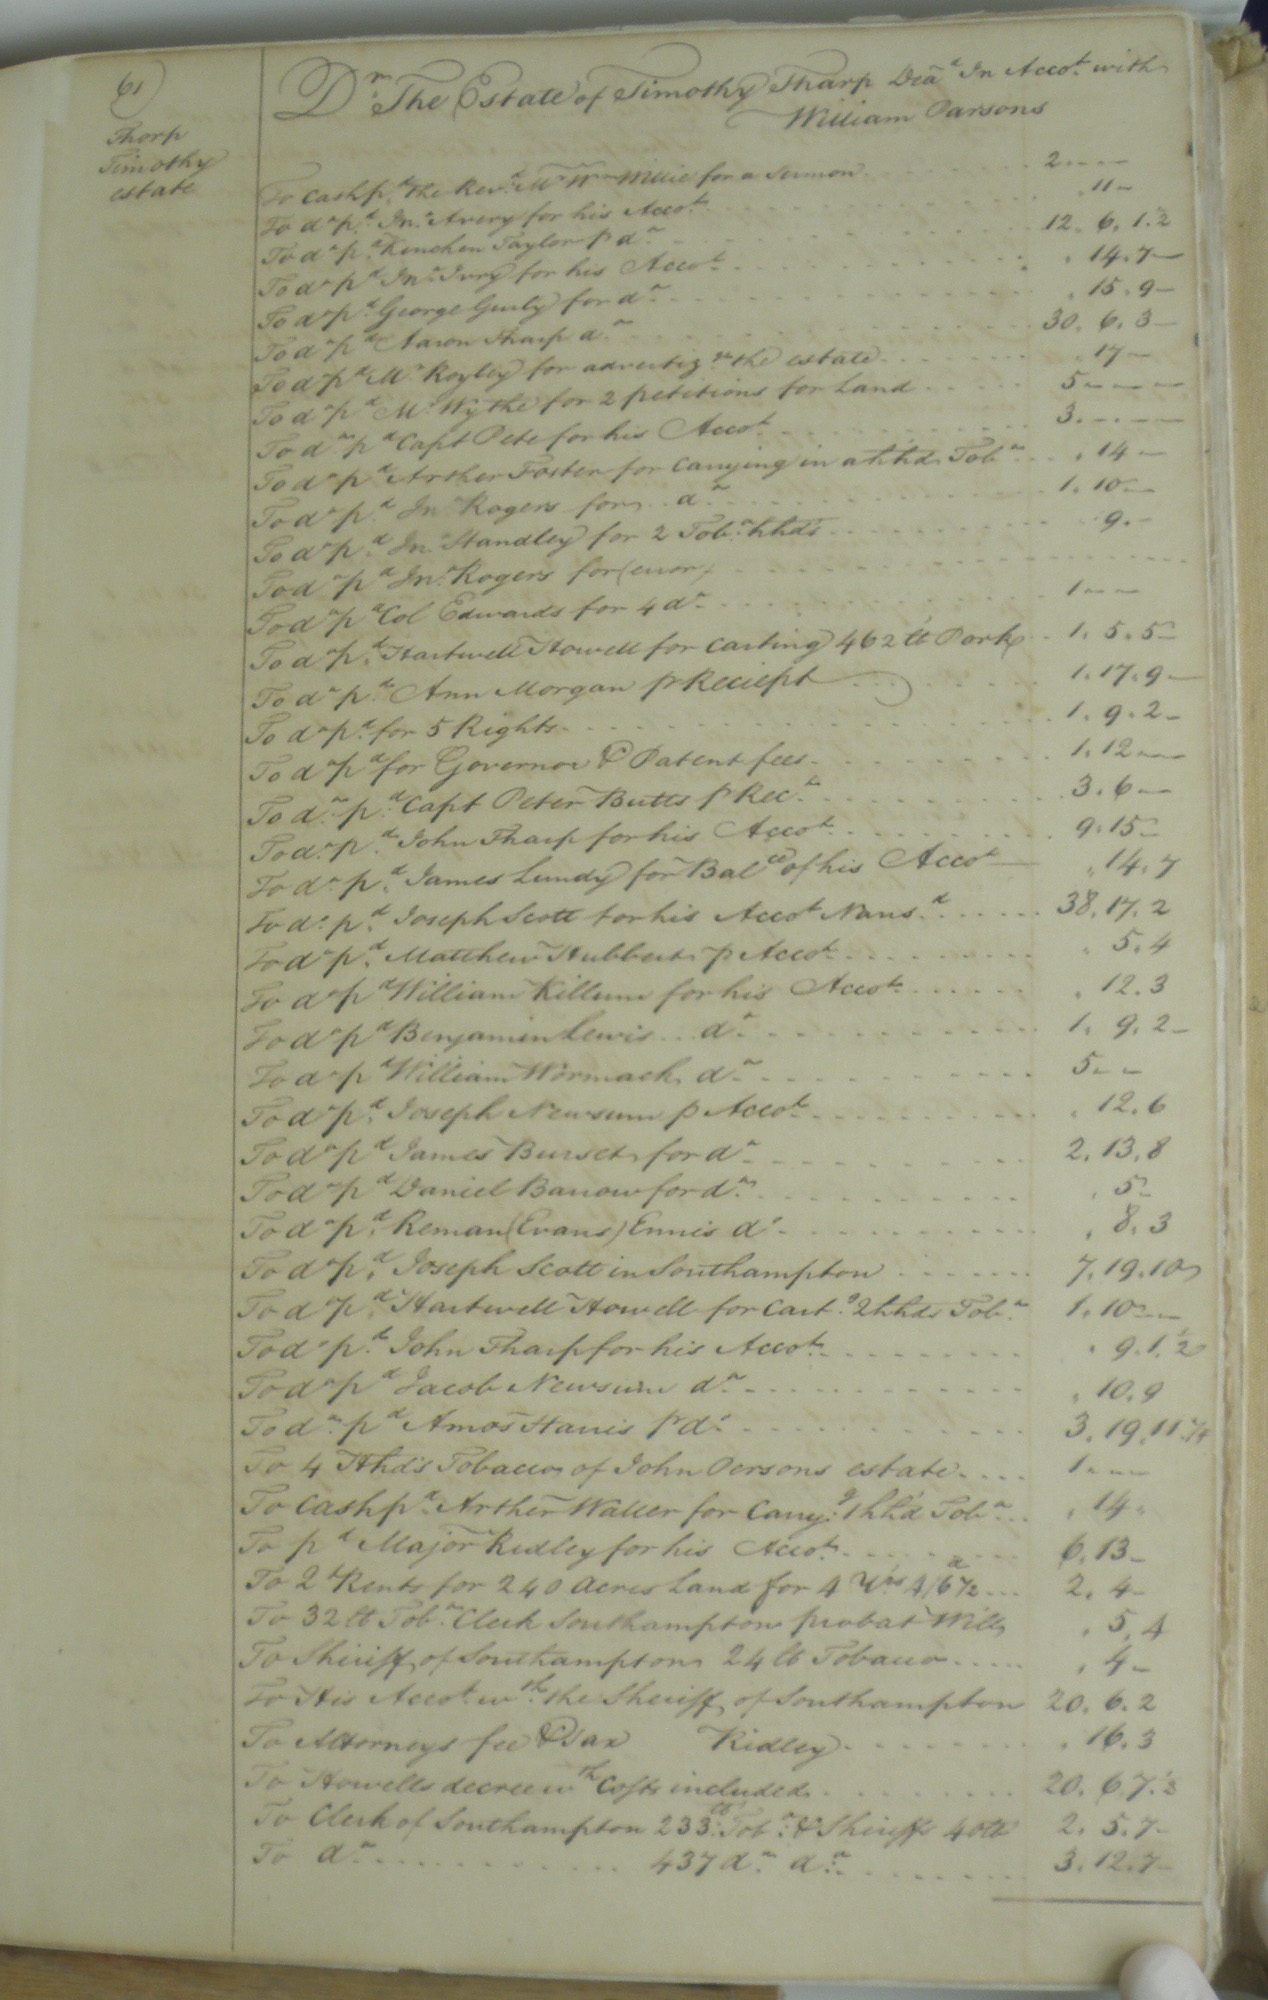 61
Thorp
Timothy
estate
Dr. The Estate of Timothy Tharp Decd In Accot. with
William Parsons
To Cash pd. the Revd. Mr. Wm Willie for a Sermon 2 - - -
To do pd. Jno. Avery for his Accot. . 11 -
To do pd. Kinchen Taylor pr do 12. 6. 1. 1/2
To do pd Jno. Ivry for his Accot . 14. 7 -
To do pd. George Gurly for do . 15. 9 -
To do pd Aaron Tharp do 30. 6. 3 -
To do pd Mr Royley for advertizg the estate . 17 -
To do pd Mr. Wythe for 2 petitions for Land 5 - - -
To do pd Capt Pete for his Accot 3. - - -
To do pd Arther Foster for Carrying in a hhd Tobo . 14 -
To do pd Jno. Rogers for do 1. 10 -
To do pd. Jno. Standley for 2 Tobo. hhds 9. -
To do pd Jno. Rogers for (error)
To do pd Col Edwards for 4 do 1 - -
To do pd. Hartwell Howell for carting 462 lt Pork 1. 5. 5 -
To do pd Ann Morgan pr Reciept 1. 17. 9 -
To do pd. for 5 Rights 1. 9. 2 -
To do pd for Governor & Patent fees 1. 12 - -
To do pd Capt Peter Butts pr Rect 3. 6 -
To do. pd John Tharp for his Accot 9. 15 -
To do pd. James Lundy for Balce of his Accot . 14. 7
To do. pd Joseph Scott for his Accot Nansd 38. 17. 2
To do pd. Matthew Hubbert p Accot . 5. 4
To do pd William Killum for his Accot . 12. 3
To do pd Benjamin Lewis do 1. 9. 2 -
To do pd William Wormack do 5 - -
To do pd. Joseph Newsum p Accot . 12. 6
To do pd James Burset for do 2. 13. 8
To do pd Daniel Barrow for do . 5 -
To do pd. Reman (Evans) Ennis do . 8. 3
To do pd. Joseph Scott in Southampton 7. 19. 10
To do pd. Hartwell Howell for Cartg. 2 hhds Tobo 1. 10 - -
To do pd. John Tharp for his Accot . 9. 1. 1/2
To do pd Jacob Newsum do . 10. 9
To do. pd Amos Harris pr do 3. 19. 11. 3/4
To 4 Hhds Tobacco of John Persons estate 1 - - -
To Cash pd Arther Waller for Carryg. 1 hhd Tobo . 14 .
To pd Major Ridley for his Accot 6. 13 -
To 2 Rents for 240 Acres Land for 4 Yrs 4/6 2. 4 -
To 32 lt Tobo. Clerk Southampton probat Will . 5. 4
To Sheriff of Southampton 24 lb Tobacco . 4 -
To His Accot. wth. the Sheriff of Southampton 20. 6. 2
To Attorneys fee & Tax Ridley . 16. 3
To Howells decree wth Costs included 20. 6. 7. 1/2
To Clerk of Southampton 233 lt Tobo. & Sheriffs 40 lt 2. 5. 7 -
To do. 437 do. do. 3. 12. 7 -